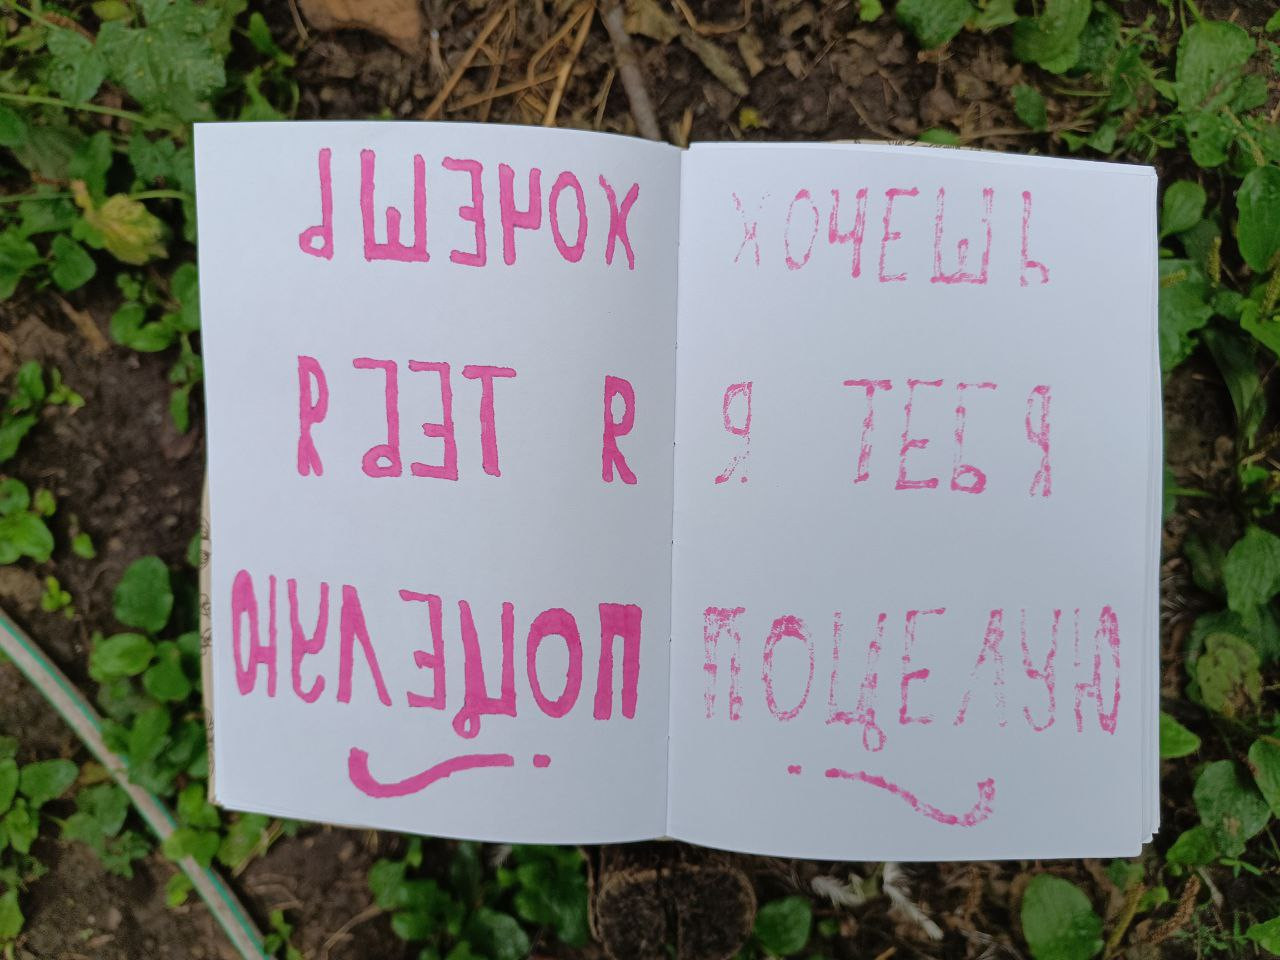 ХОЧЕШЬ
Я ТЕБЯ
ПОЦЕЛУЮ
ХОЧЕШЬ
Я ТЕБЯ
ПОЦЕЛУЮ